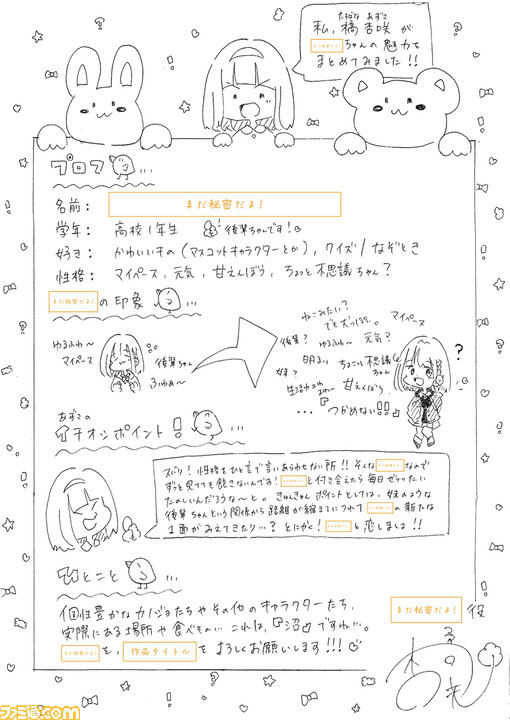 たちばな あずさ
私、橘 杏咲 が
まだ秘密だよ!ちゃんの魅力を
まとめてみました!!
プロフ ...
名前: まだ秘密だよ!
学年: 高校1年生 後輩ちゃんです!
好き: かわいいもの(マスコットキャラクターとか), クイズ/なぞとき
性格: マイペース, 元気, 甘えんぼう, ちょっと不思議ちゃん?
まだ秘密だよ!の印象 ...
ゆるふわ〜
マイペース
後輩ちゃん
ふわぁ〜
ねこみたい?
でも犬っぽい..
マイペース
後輩?
ゆるふわ〜
元気?
妹?
明るい
ちょこっと不思議ちゃん
甘えんぼう
... つかめない!!
?
あずさの
イチオシポイント! ...
ズバリ! 性格をひと言で言いあらわせない所!! そんなまだ秘密だよ!なので
ずっと見てても飽きないんです! まだ秘密だよ!と付き合えたら毎日ぜったい
たのしいんだろうな〜と。きゅんきゅんポイントとしては、妹のような
後輩ちゃんという関係から距離が縮まるにつれてまだ秘密だよ!の新たな
1面がみえてきたり...? とにかく! まだ秘密だよ!と恋しましょ!!
ひとこと ...
個性豊かなカノジョたちやその他のキャラクターたち,
実際にある場所や食べもの... これは,『沼』ですね...。
まだ秘密だよ!を、作品タイトルをよろしくお願いします!!!
まだ秘密だよ! 役
ファミ通.com